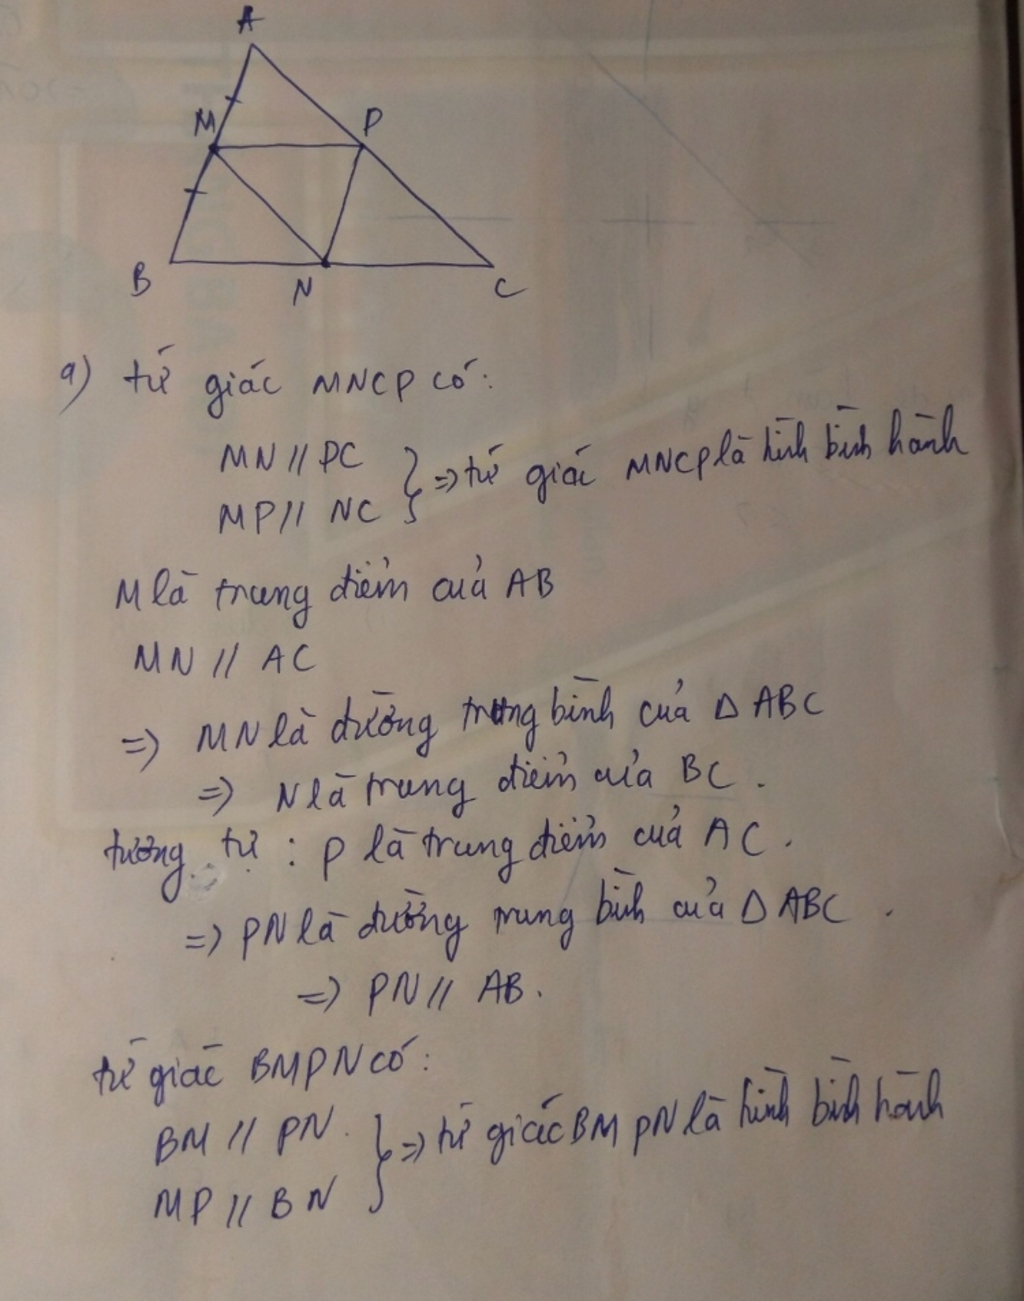 A
M
P
B
N
C
a) tứ giác MNCP có:
MN // PC
MP // NC } => tứ giác MNCP là hình bình hành
M là trung điểm của AB
MN // AC
=> MN là đường trung bình của Δ ABC
=> N là trung điểm của BC.
tương tự : P là trung điểm của AC.
=> PN là đường trung bình của Δ ABC.
=> PN // AB.
tứ giác BMPN có:
BM // PN.
MP // BN } => tứ giác BMPN là hình bình hành